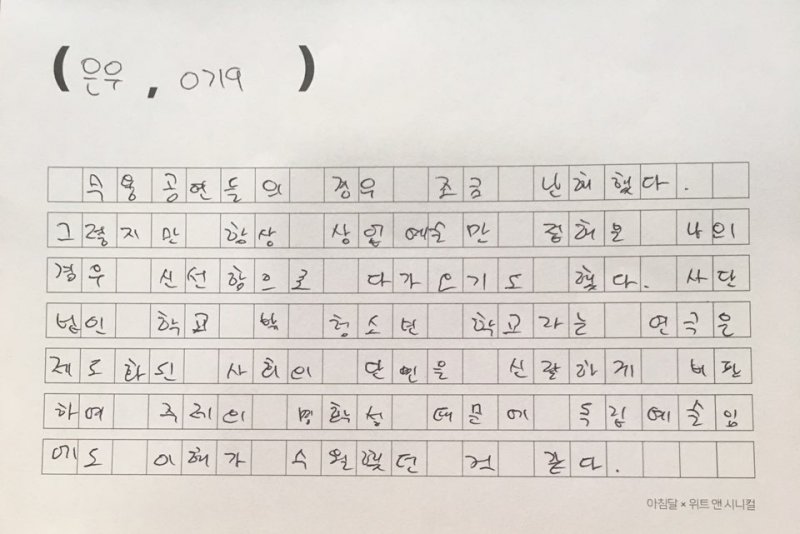 (은우, 0719)
수용 공연들의 경우 조금 난해했다.
그렇지만 항상 상업예술만 접해온 나의
경우 신선함으로 다가오기도 했다. 사단
법인 학교 밖 청소년 학교라는 연극을
제도화된 사회의 단면을 신랄하게 비판
하여 주제의 명확성 때문에 독립예술임
에도 이해가 수월했던 것 같다.
아침달 × 위트 앤 시니컬